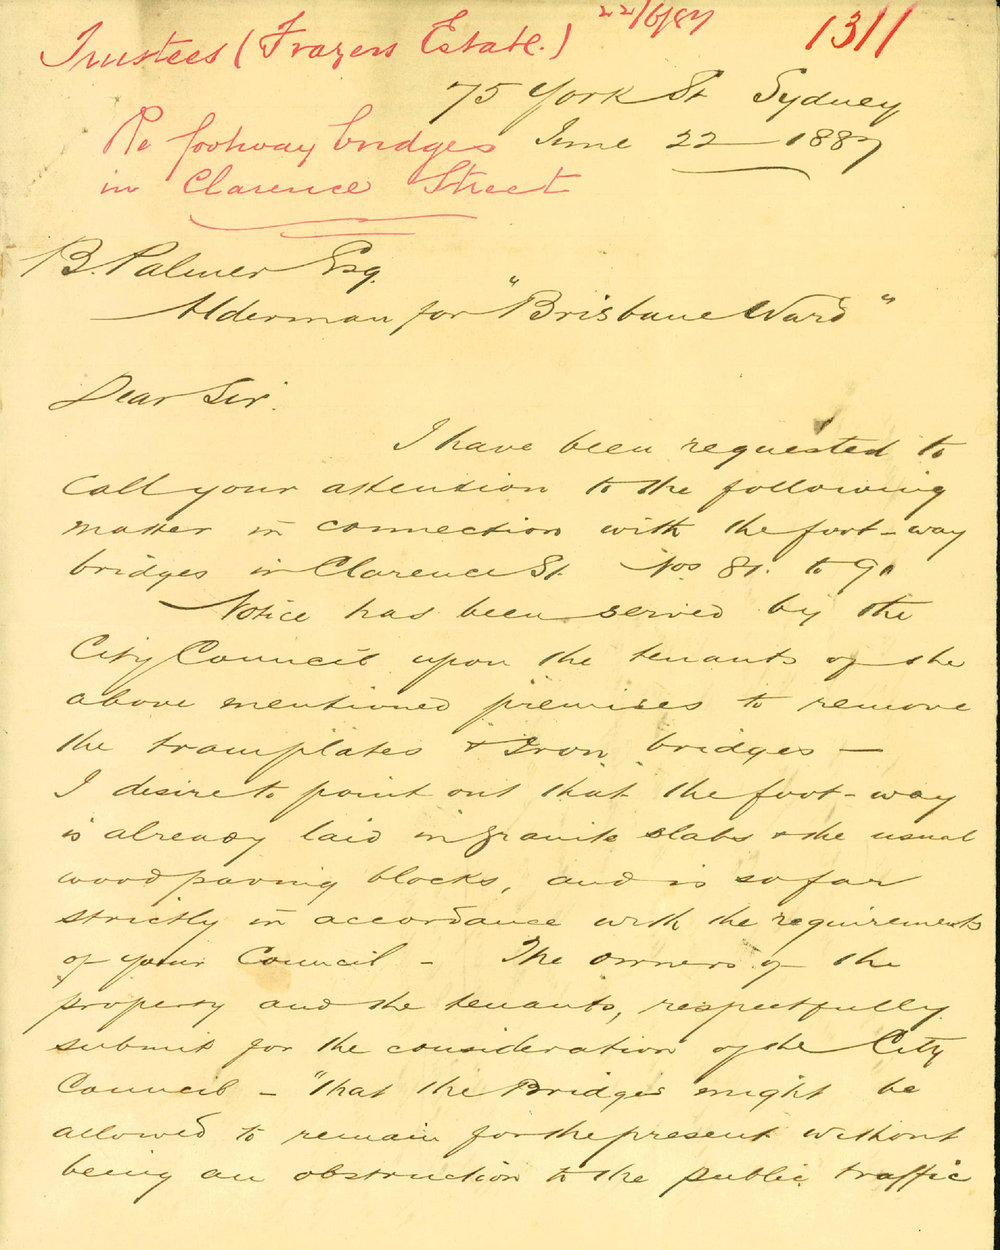 22/6/87
1311
Trustees (Frazers Estate.)
75 York St Sydney
Re footway bridges
June 22 - 1887
in Clarence Street
B. Palmer Esq.
Alderman for "Brisbane Ward"
Dear Sir.
I have been requested to
call your attention to the following
matter in connection with the foot-way
bridges in Clarence St. Nos 81. to 91
Notice has been served by the
City Council upon the tenants of the
above mentioned premises to remove
the tramplates & Iron bridges -
I desire to point out that the foot-way
is already laid in granite slabs & the usual
wood paving blocks, and is so far
strictly in accordance with the requirements
of your Council - The owners of the
property and the tenants, respectfully
submit for the consideration of the City
Council - "that the Bridges might be
allowed to remain for the present without
being an obstruction to the public traffic